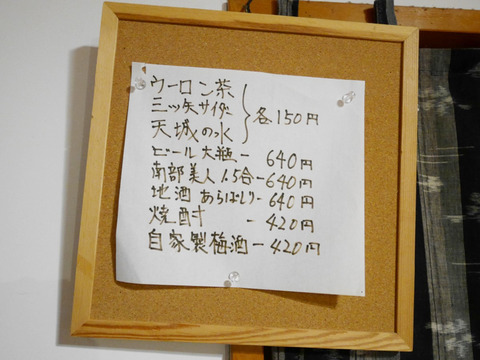 ウーロン茶
三ツ矢サイダー
天城の水
各150円
ビール大瓶ー640円
南部美人1.5合ー640円
地酒あらばしりー640円
焼酎ー420円
自家製梅酒ー420円